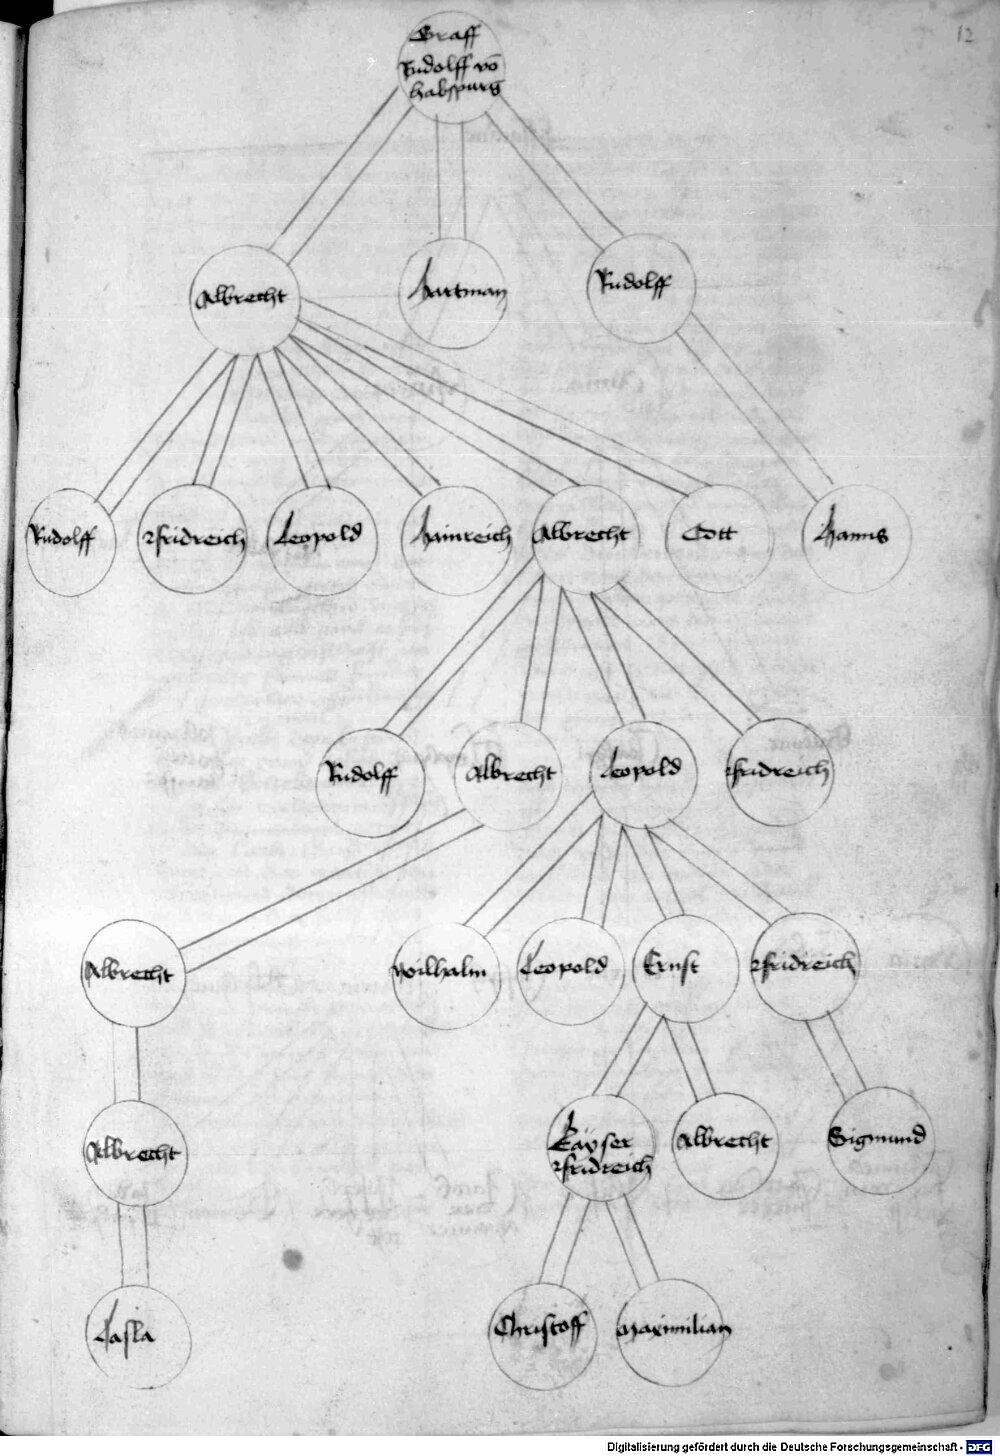 12
Graff
Rudolff vō
habspurg
Albrecht
Hartman
Rudolff
Rudolff
Fridreich
Leopold
Hainreich
Albrecht
Ott
Hanns
Rudolff
Albrecht
Leopold
Fridreich
Albrecht
Wilhalm
Leopold
Ernst
Fridreich
Albrecht
Kayser
Fridreich
Albrecht
Sigmund
Lasla
Christoff
Maximilian
Digitalisierung gefördert durch die Deutsche Forschungsgemeinschaft - DFG